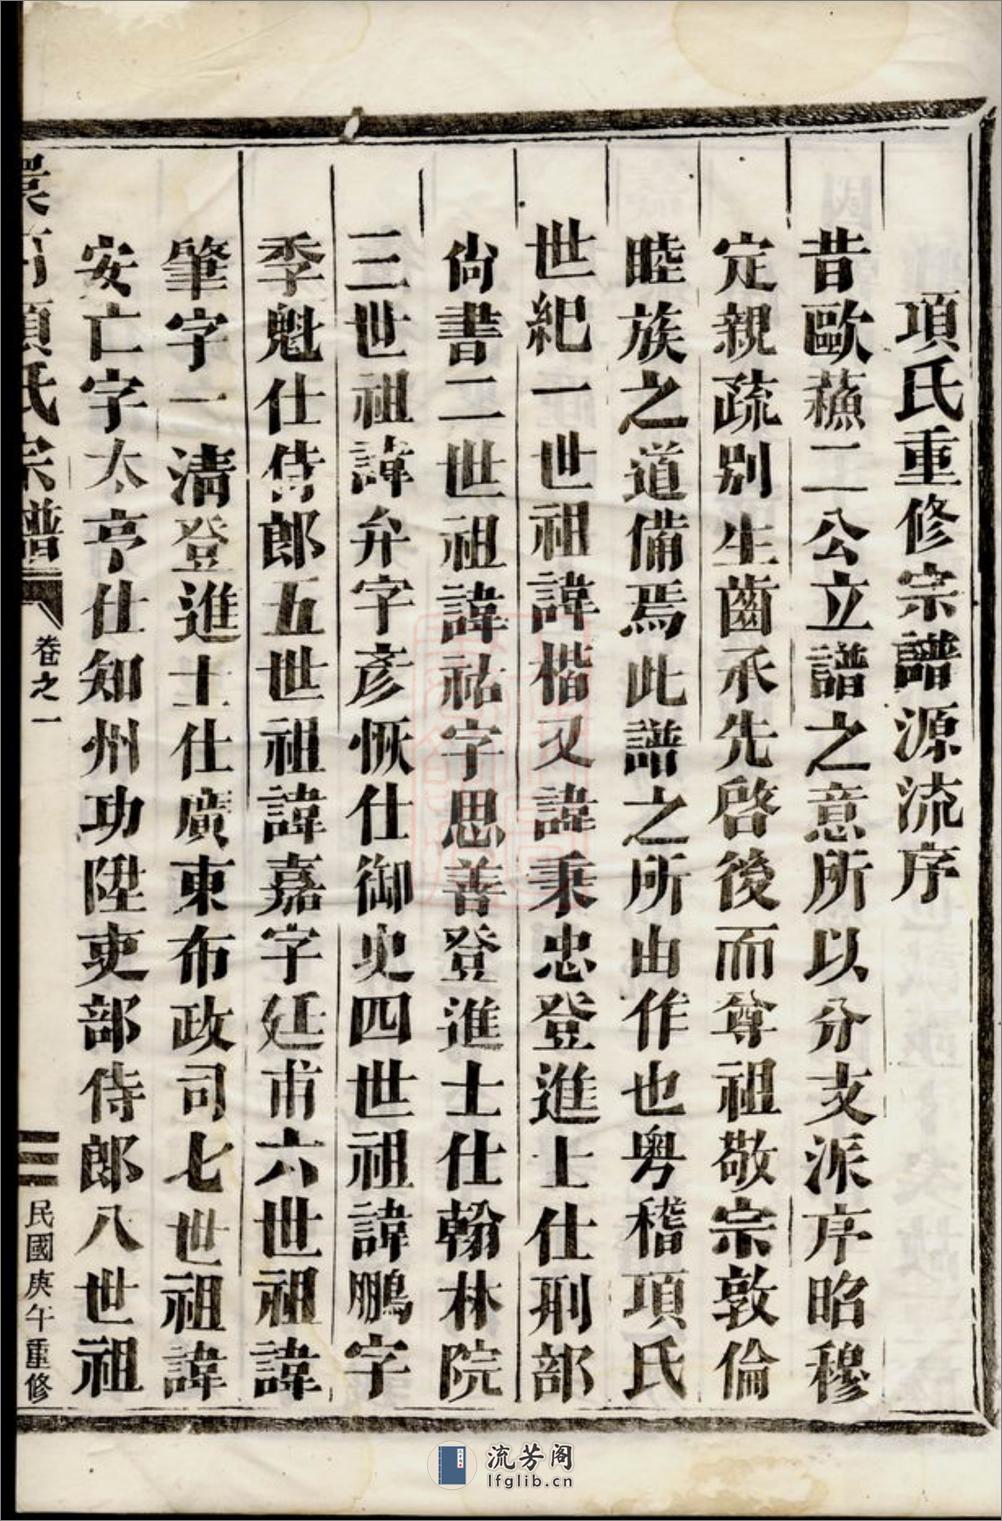 項氏重修宗譜源流序
昔歐蘓二公立譜之意所以分支派序昭穆
定親疏别生齒承先啓後而尊祖敬宗敦倫
睦族之道備焉此譜之所由作也粤稽項氏
世紀一世祖諱楷又諱秉忠登進士仕刑部
尙書二世祖諱祐字思善登進士仕翰林院
三世祖諱弁字彥恢仕御史四世祖諱鵬字
季魁仕侍郎五世祖諱嘉字廷甫六世祖諱
肇字一淸登進士仕廣東布政司七世祖諱
安亡字太亨仕知州功陞吏部侍郎八世祖
項氏宗譜
卷之一
民國庚午重修
流芳阁
lfglib.cn